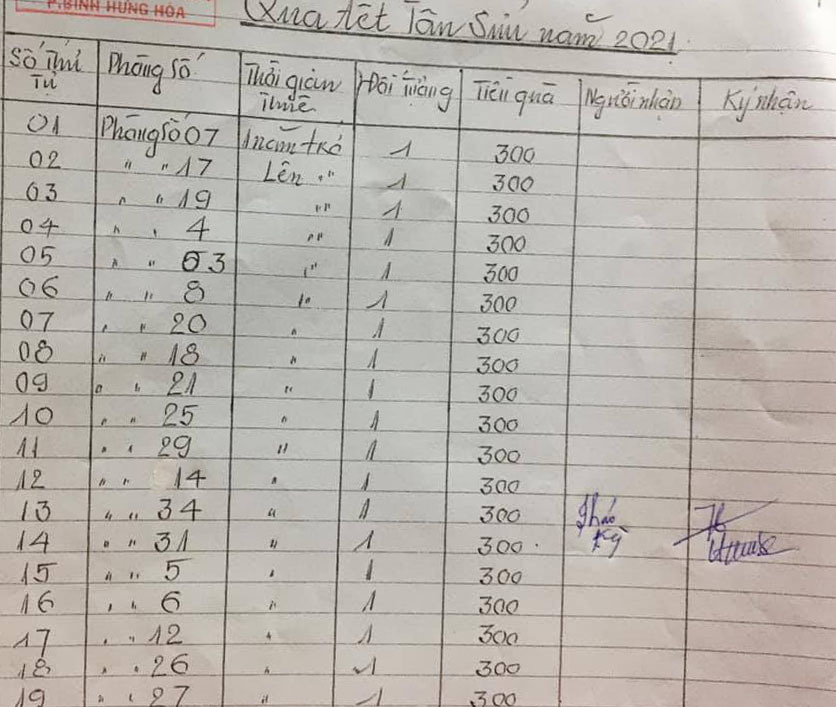 P.BÌNH HƯNG HÒA
Quà tết Tân Sửu năm 2021
Số Thứ Tự Phòng Số Thời gian Thuê Đối Tượng Tiền quà Người nhận Ký nhận
01 Phòng Số 07 1 năm trở 1 300
02 " " 17 Lên " 1 300
03 " " 19 " 1 300
04 " " 4 " 1 300
05 " " 03 " 1 300
06 " " 8 " 1 300
07 " " 20 " 1 300
08 " " 18 " 1 300
09 " " 21 " 1 300
10 " " 25 " 1 300
11 " " 29 " 1 300
12 " " 14 " 1 300
13 " " 34 " 1 300
14 " " 31 " 1 300
15 " " 5 " 1 300
16 " " 6 " 1 300
17 " " 12 " 1 300
18 " " 26 " 1 300
19 " " 27 " 1 300